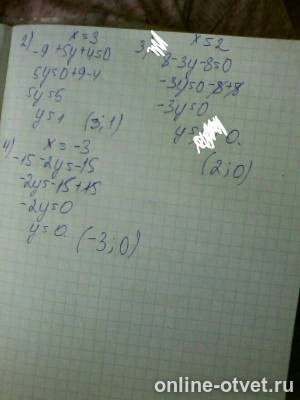 2) x = 3
-9 + 5y + 4 = 0
5y = 0 + 9 - 4
5y = 5
y = 1 (3; 1)
3) x = 2
8 - 3y - 8 = 0
-3y = 0 - 8 + 8
-3y = 0
y = 0.
(2; 0)
4) x = -3
-15 - 2y = -15
-2y = -15 + 15
-2y = 0
y = 0. (-3; 0)
online-otvet.ru